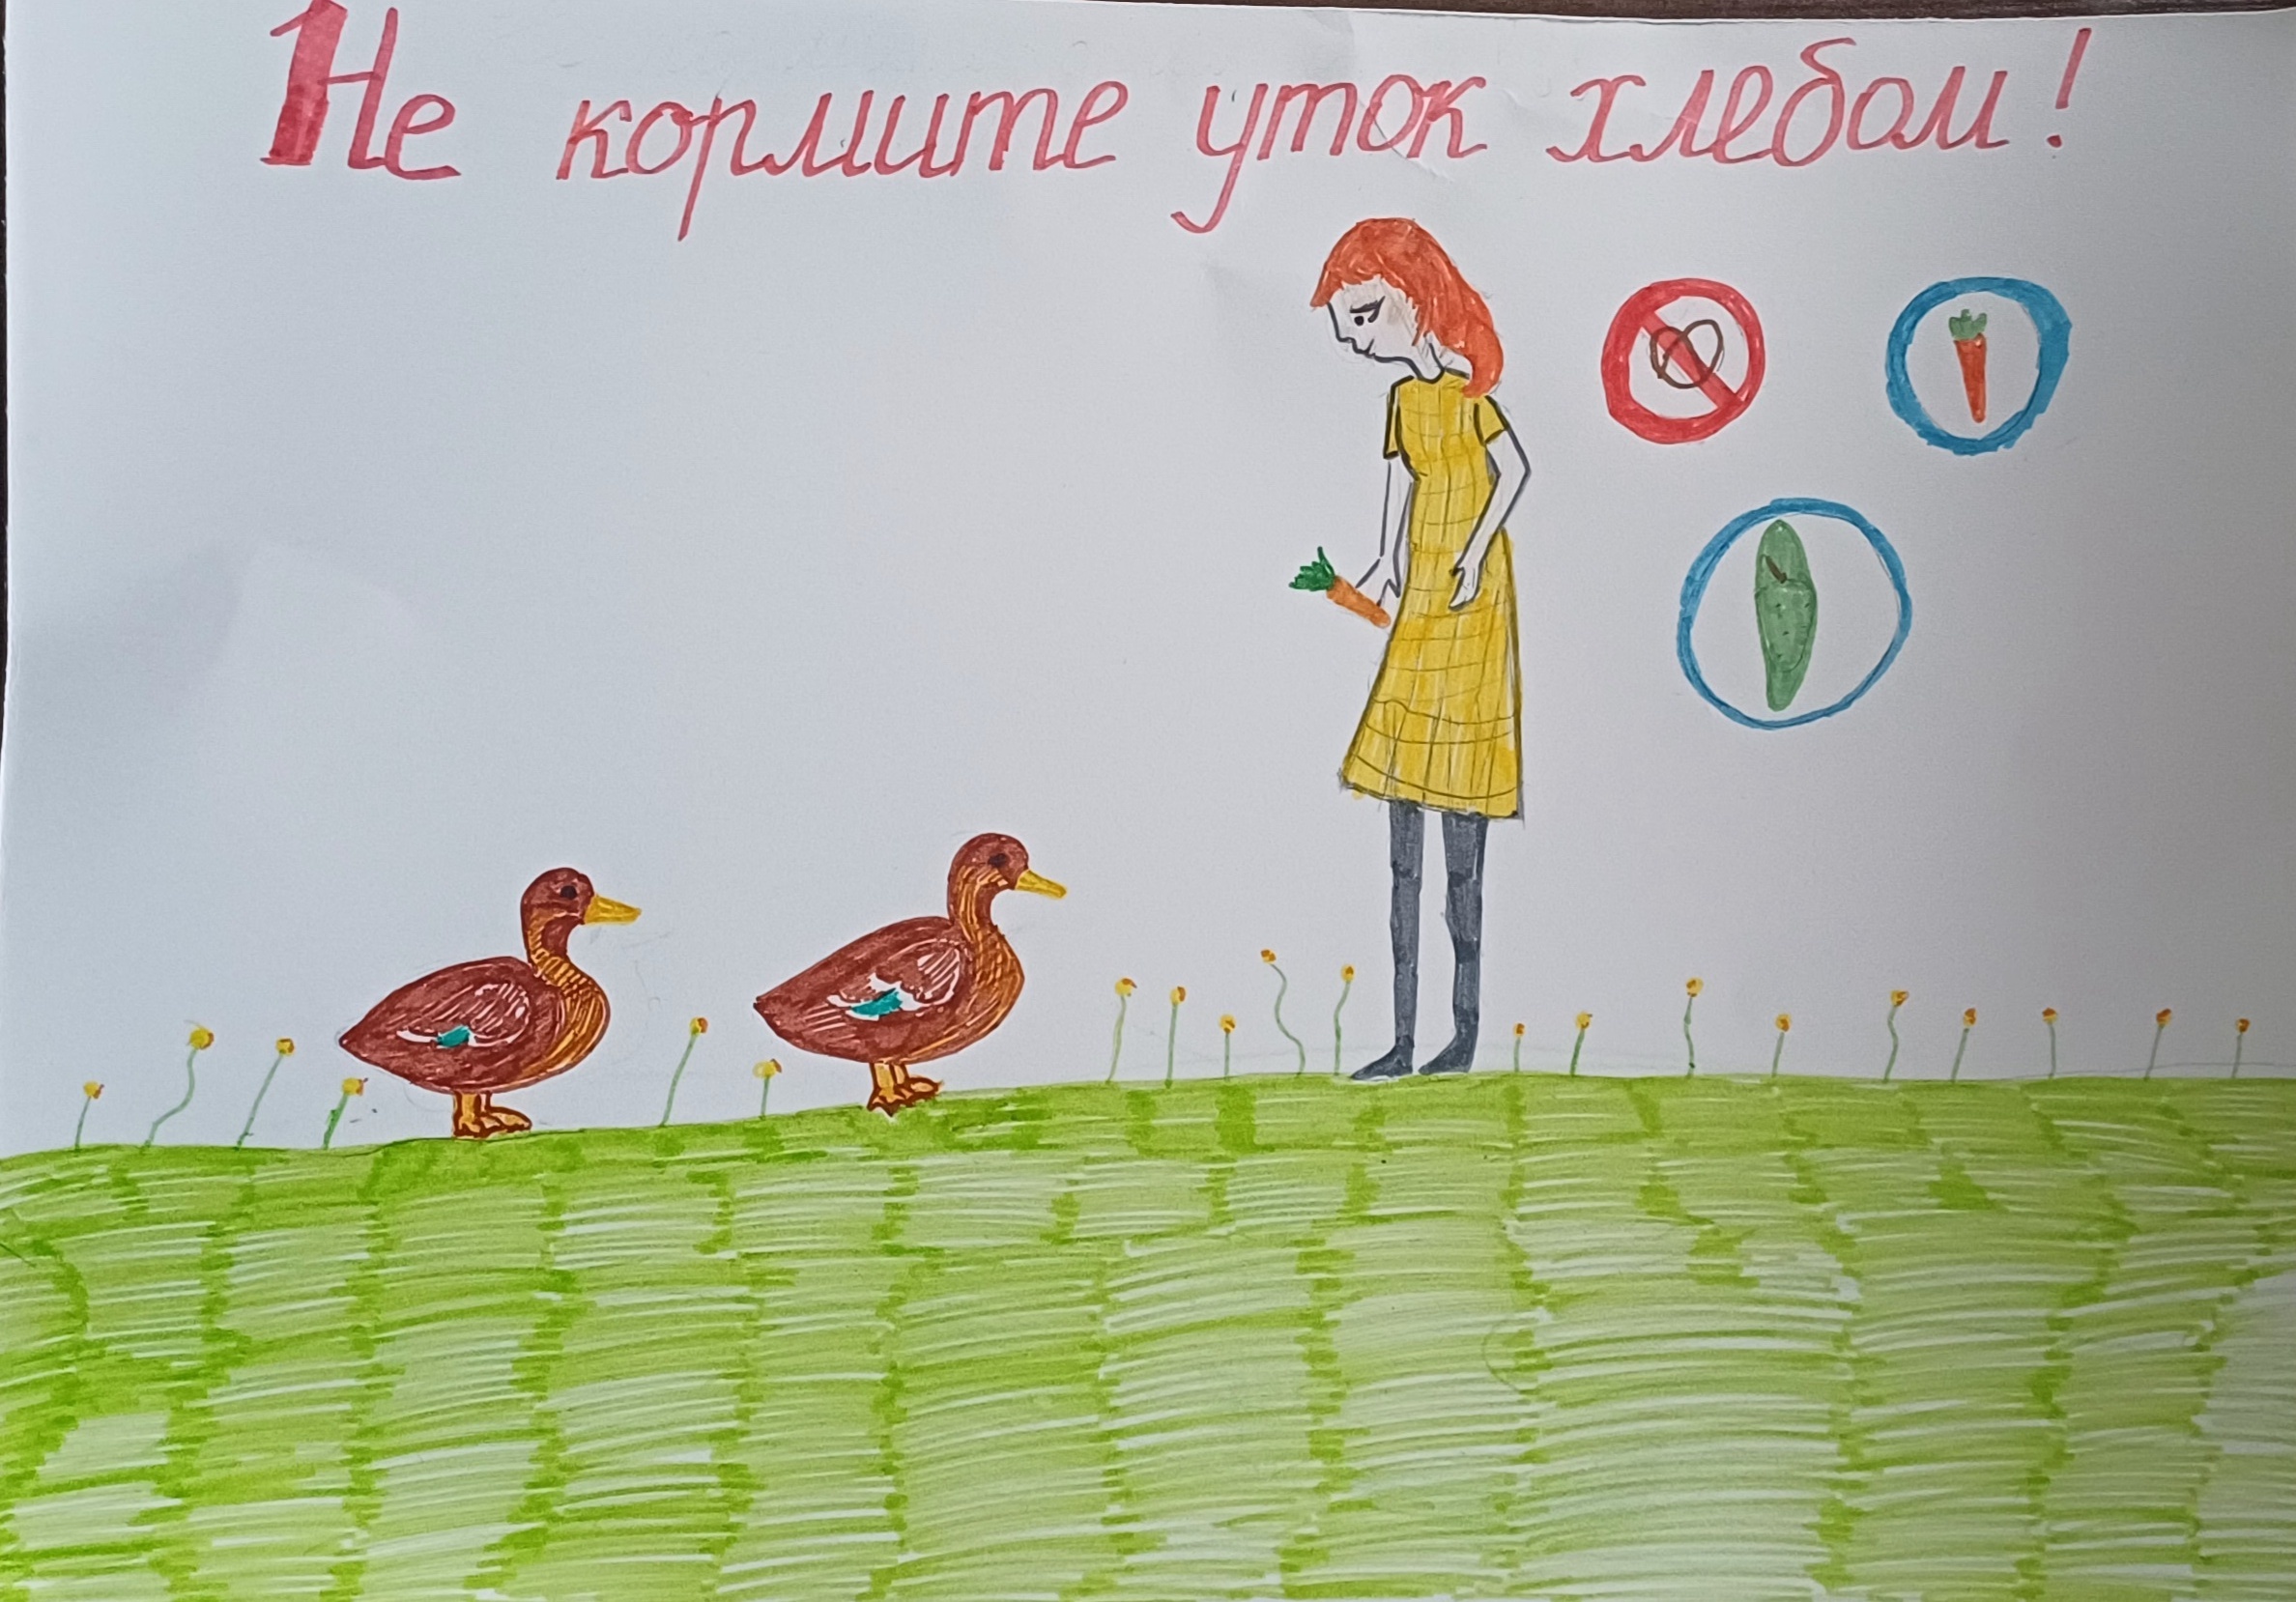 Не кормите уток хлебом!